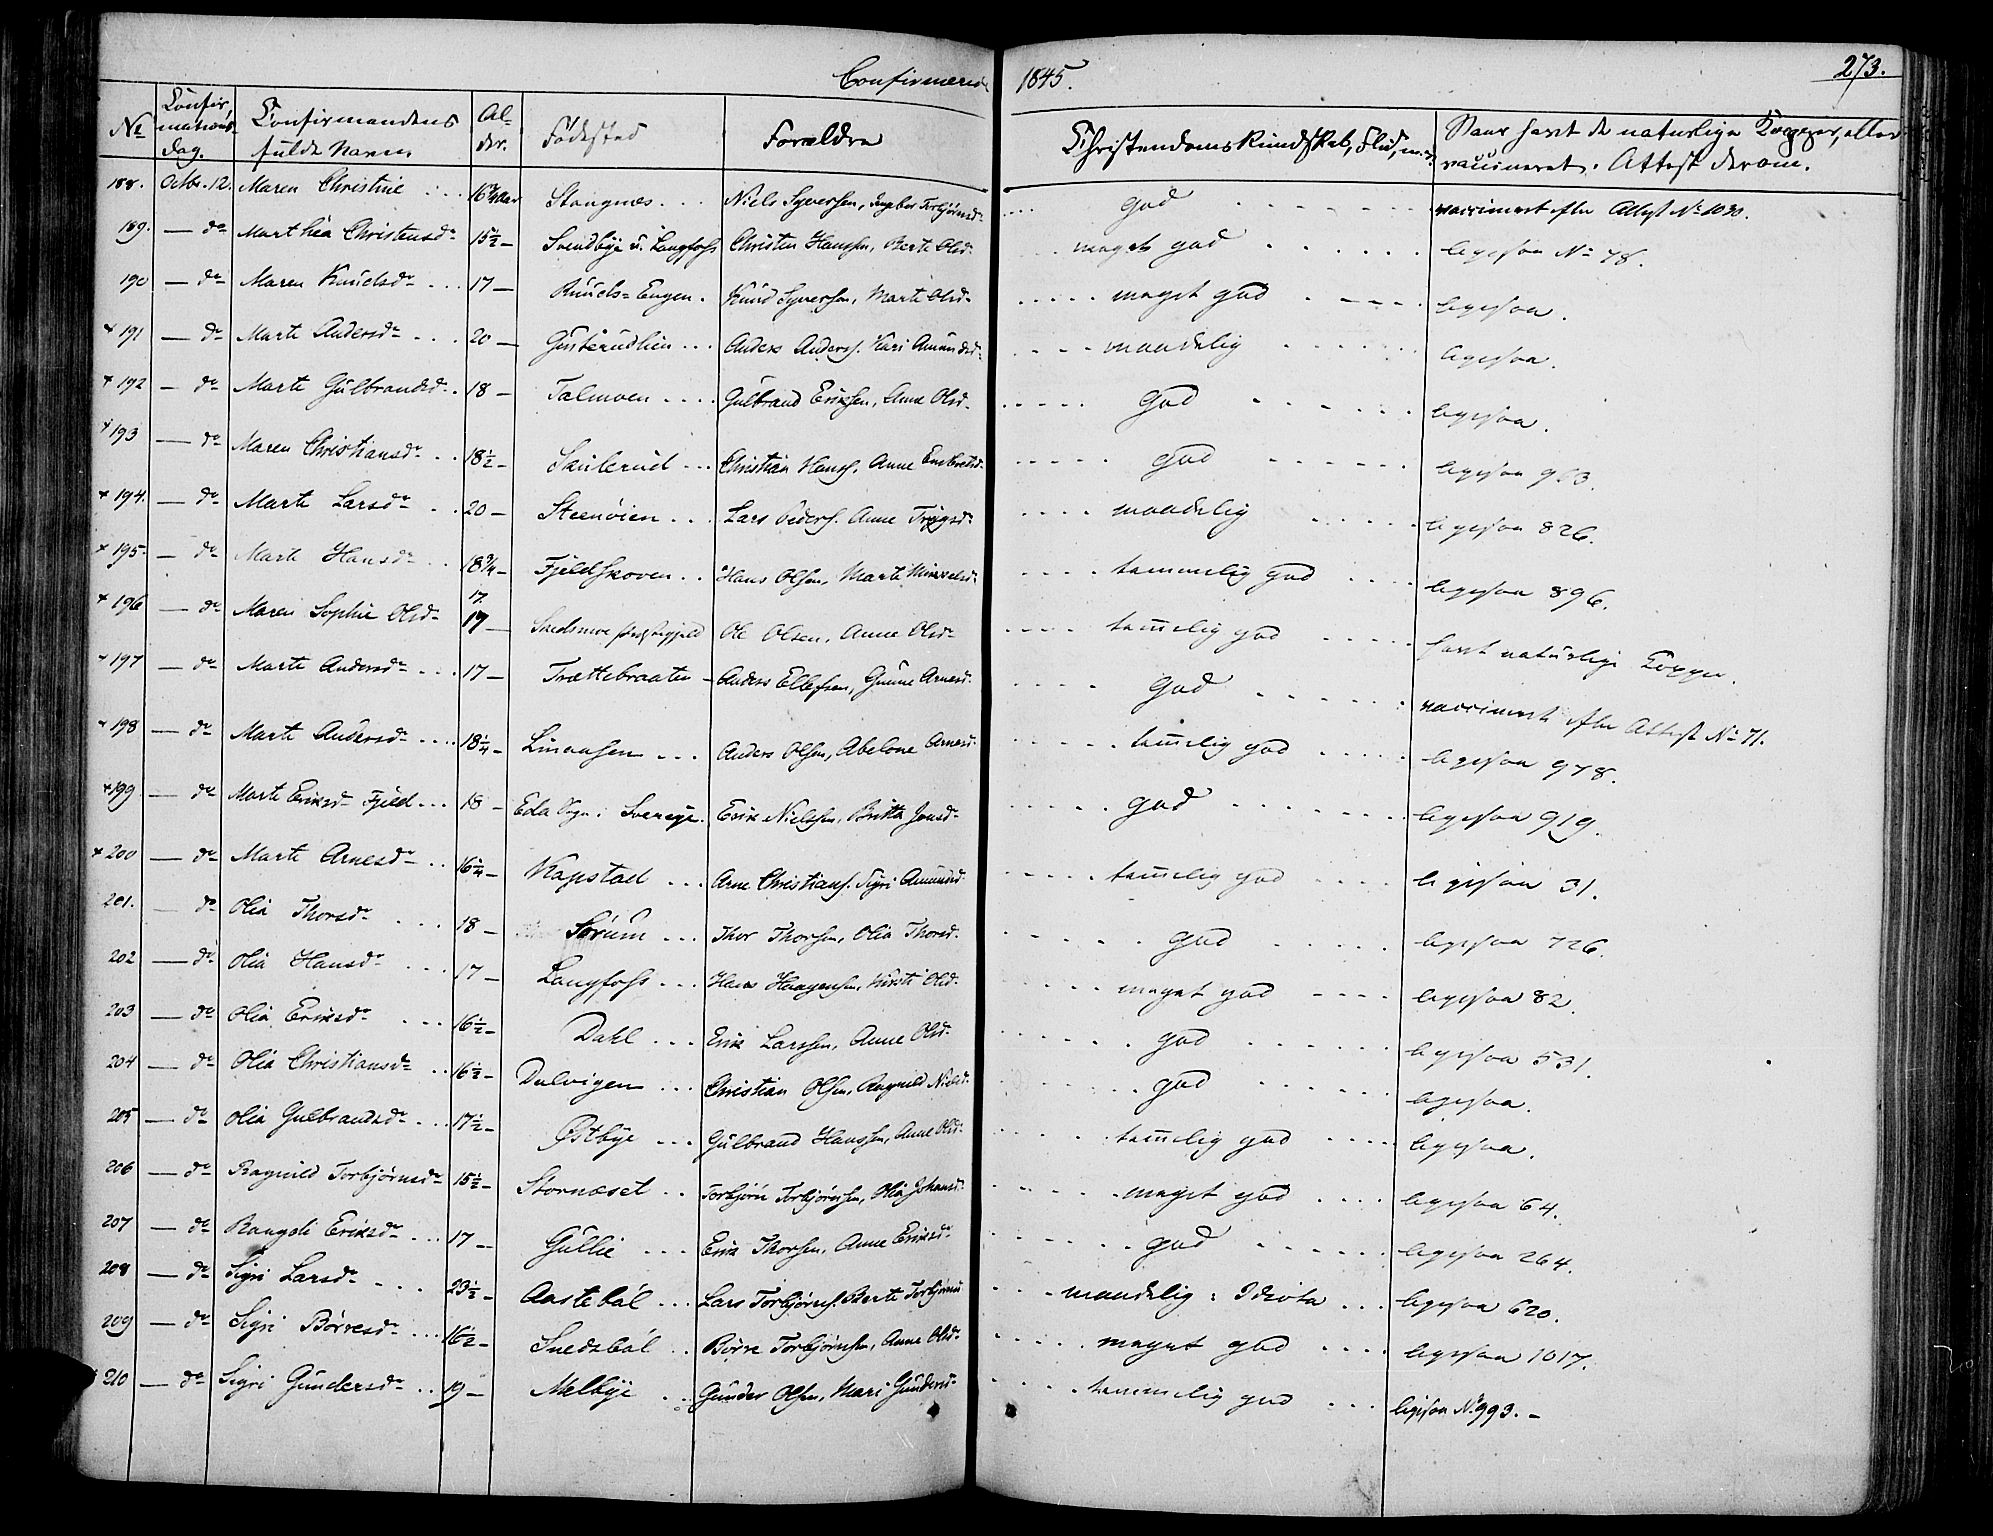 Confirmerede 1845. 273.
No Confirmations Dag. Confirmandens fulde Navn. Alder. Fødested Forældre Christendoms Kundskab, Flid, m.v. Naar havt de naturlige Kopper, eller vaccineret. Attest derom.
188. Octbr. 12. Maren Christine 16 3/4 Aar Stangnæs Niels Syversen, Ingebor Torbjørnsd. God vaccineret efter Attest No 1030.
189. — do Marthea Christensdr 15 1/2 — Svendbye u. Langfoss Christen Hanssen, Berte Olsd. meget god ligesaa No 78.
190 — do Maren Knudsdr 17 — Ruuds-Engen Knud Syversen, Marte Olsd. meget god ligesaa.
+ 191 — do Marte Andersdr 20 — Gusterudlien Anders Anderss. Kari Amundsd. maadelig ligesaa.
+ 192 — do Marte Gulbrandsd. 18 — Talmoen Gulbrand Eriksen, Anne Olsd. God ligesaa.
+ 193 — do Maren Christiansdr 18 1/2 — Skulerud Christian Hanss. Anne Embretsd. God ligesaa 963.
+ 194. — do Marte Larsdr 20 — Steenøien Lars Peders. Anne Trygsd. maadelig ligesaa 826.
+ 195. — do Marte Hansdr 18 3/4 — Fjeldskoven Hans Olsen, Marte Mikkelsd. temmelig god ligesaa 896.
+ 196 — do Maren Sophie Olsd. 17. 17 — Præstegjeld Ole Olsen, Anne Olsd. temelig god havt naturlige Kopper.
+ 197 — do Marte Andersdr 17 — Trættebraaten Anders Ellefsen, Gunne Arnesd. God vaccineret efter Attest No 71.
+ 198 — do Marte Andersdr 18 1/4 — Linaasen Anders Olsen, Abelone Arnesd. temelig god ligesaa 978.
+ 199 — do Marte Eriksdr Fjeld 18 — Eda Sogn i Sverige. Erik Nielsen, Britta Jonsd. God ligesaa 919.
+ 200 — do Marte Arnesdr 16 1/4 — Kapstad Arne Christians. Sigri Amundsd. temelig god ligesaa 31.
201. — do Olia Thorsdr 18 — Sørum Thor Thorsen, Olia Thorsd. god ligesaa 726.
202 — do Olia Hansdr 17 — Langfoss Hans Haagensen, Kirsti Olsd. meget god ligesaa 82.
203 — do Olia Eriksdr 16 1/2 — Dahl Erik Larssen, Anne Olsd. god ligesaa 531.
204 — do Olia Christiansdr 16 1/2 — Dulvigen Christian Olsen, Ragnild Nielsd. god ligesaa.
205 — do Olia Gulbrandsdr 17 1/2 — Østbye Gulbrand Hanssen, Anne Olsd. temelig god ligesaa.
206 — do Ragnild Torbjørnsdr 15 1/2 — Stornæset Torbjørn Torbjørnsen, Olia Johansd. meget god ligesaa 64.
207 — do Rangdi Eriksdr 17 — Gullie Erik Thorsen, Anne Eriksd. god ligesaa 264.
208 — do Sigri Larsdr 23 1/2 — Aastebøl Lars Torbjørns. Berte Torbjørnsd. maadelig: Idiota ligesaa 620.
209 — do Sigri Børresdr 16 1/2 — Snedsbøl Børre Torbjørnsen, Anne Olsd. meget god ligesaa 1017.
+ 210 — do Sigri Gundersdr 19 — Melbye Gunder Olsen, Mari Gundersd. temmelig god ligesaa No 993. —